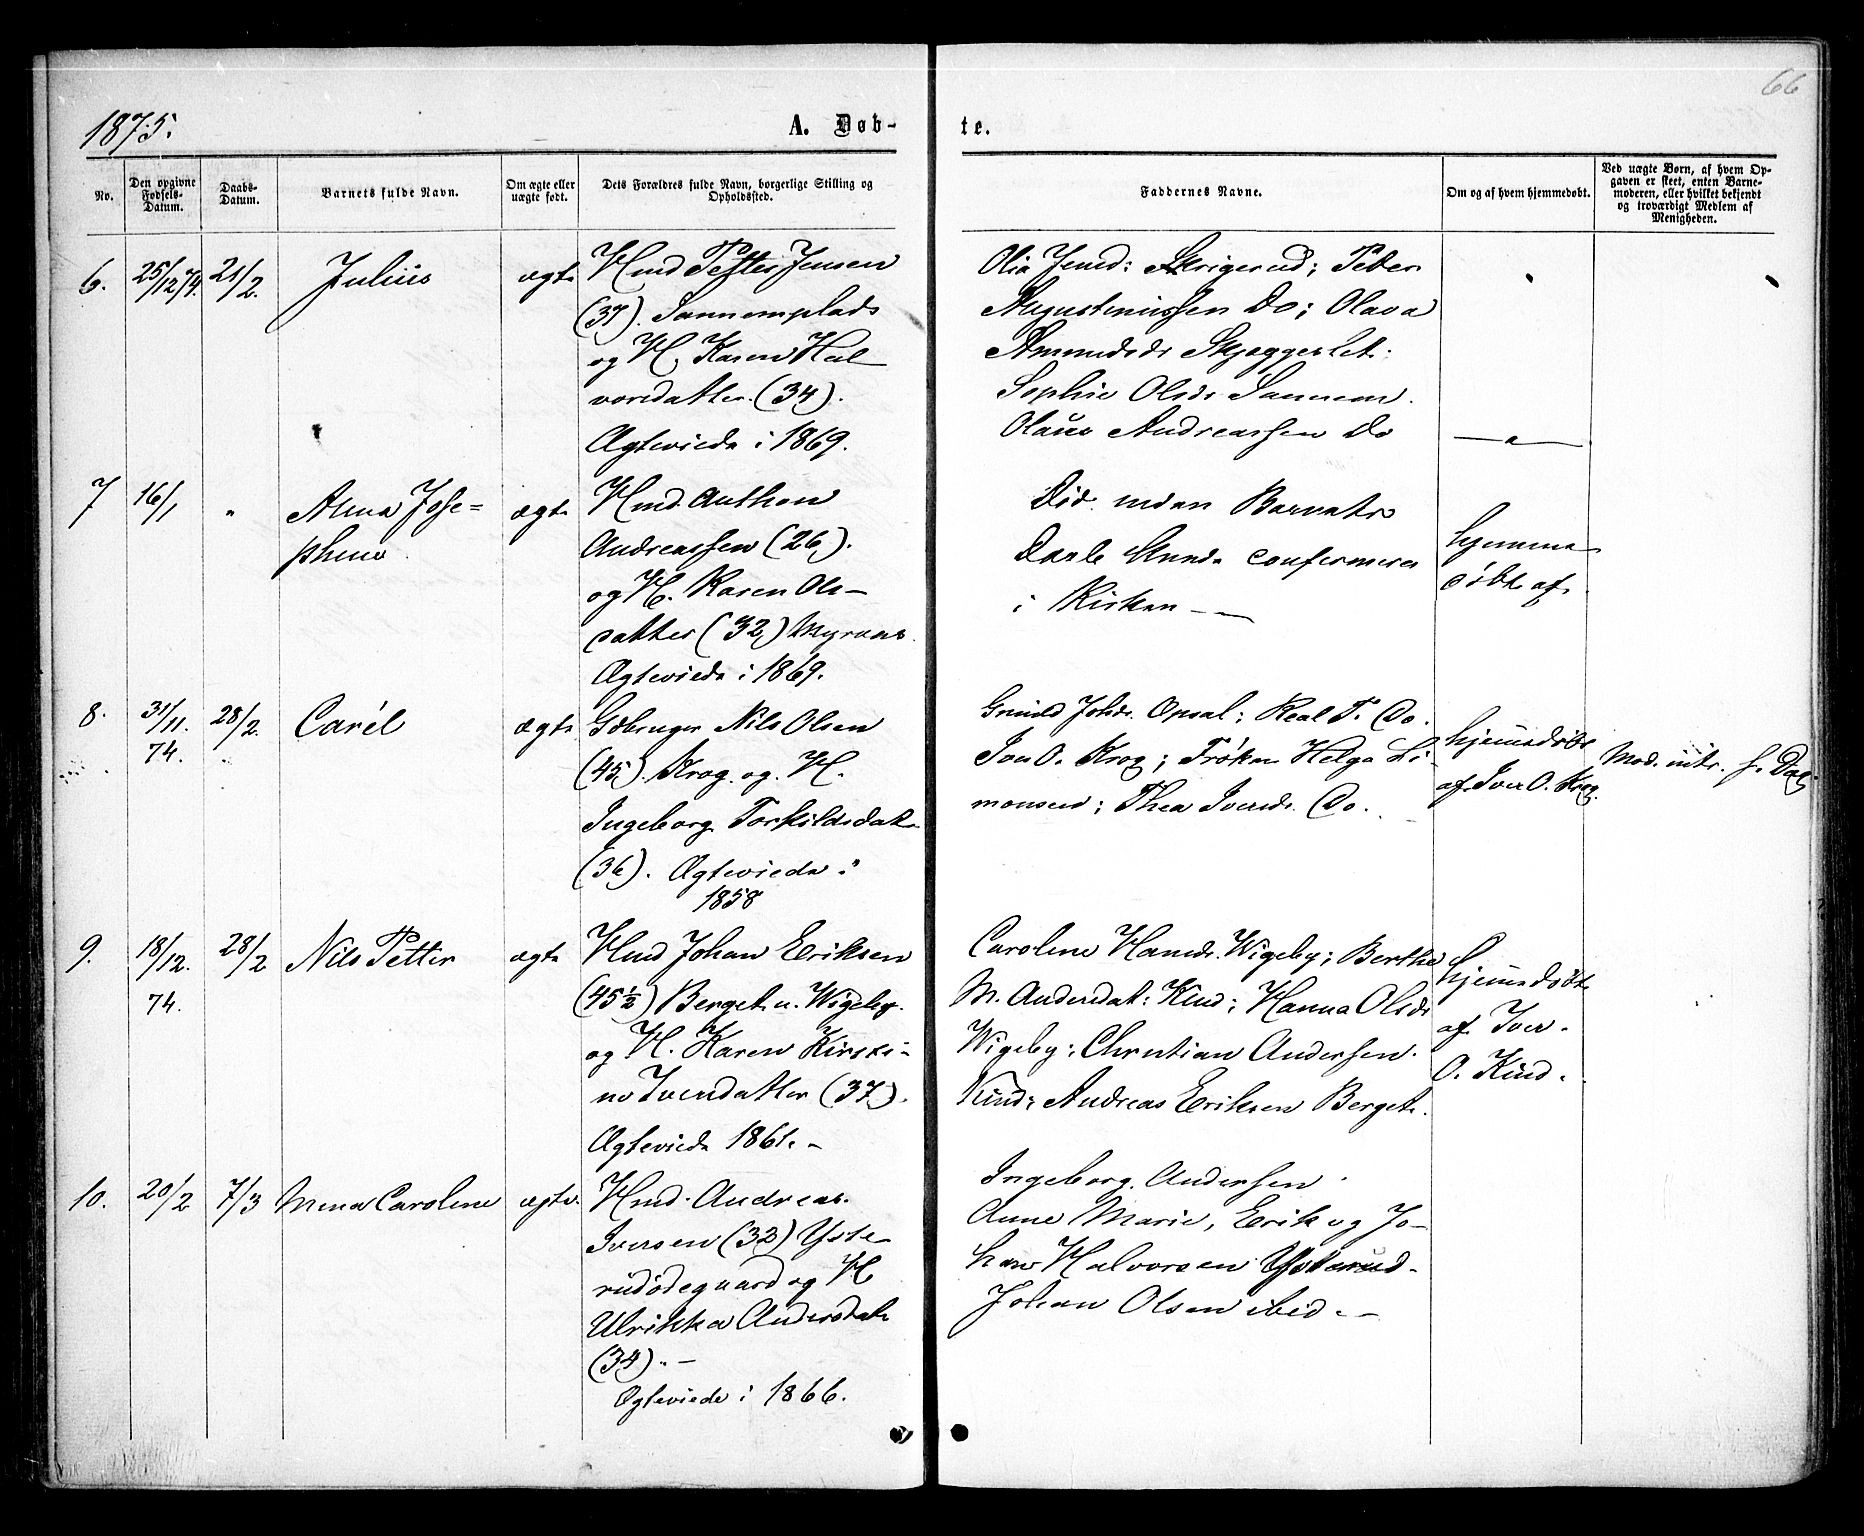 66
1875.
A. Døb-
te.
No.
Den opgivne
Fødsels-
Datum.
Daabs-
Datum.
Barnets fulde Navn.
Om ægte eller
uægte født.
Dets Forældres fulde Navn, borgerlige Stilling og
Opholdssted.
Faddernes Navne.
Om og af hvem hjemmedøbt.
Ved uægte Børn, af hvem Op-
gaven er skeet, enten Barne-
moderen, eller hvilket bekjendt
og troværdigt Medlem af
Menigheden.
6.
25/12 74.
21/2.
Julius
ægte
Hmd Petter Jensen
(37). Sannemplads
og H. Karen Hal
vorsdatter. (34).
Ægteviede i 1869.
Olia Jensd: Skrigerud; Peter
Augustinussen Do; Olava
Amundsdr
Sophie Olsdr Sannem.
Olaus Andreassen Do
7
16/1
"
Alma Jose=
phine
ægte
Hmd. Anthon
Andreassen (26).
og H. Karen Ols-
datter (32)
Ægteviede i 1869.
Død inden Barnets
Daab kunde confirmeres
i Kirken -
hjemme
døbt af
8.
31/11.
74.
28/2.
Carél
ægte
Gdbruger Nils Olsen
(45). Krog. og. H.
Ingeborg Torkildsdatr
(36). Ægteviede i
1858
Johdr. Opsal; Real T. Do.
Iver O. Krog; Frøken Helga Si-
monsen; Thea Iversdr. Do.
hjemmedøbt
af Iver O. Krog.
9.
18/12.
74.
28/2
Nils Petter
ægte
Hmd Johan Eriksen
(45½) Berget u. Wigeby.
og H. Karen Kirsti-
ne Iversdatter (37).
Ægteviede 1861. -
Caroline Hansdr. Wigeby; Berthe
M. Andersdat: Kind; Hanna Olsdr
Wigeby; Christian Andersen.
Kind; Andreas Eriksen Berget.
hjemmedøbt
af Iver
O. Kind.
10.
20/2
7/3
Mina Caroline
ægte.
Hmd. Andreas.
Iversen (32) Yste-
rudødegaard og H
Ulrikka Andersdatr
(34). -
Ægteviede i 1866.
Ingeborg. Andersen
Anne Marie, Erik og Jo-
han Halvorsen Ysterud.
Johan Olsen ibid. -